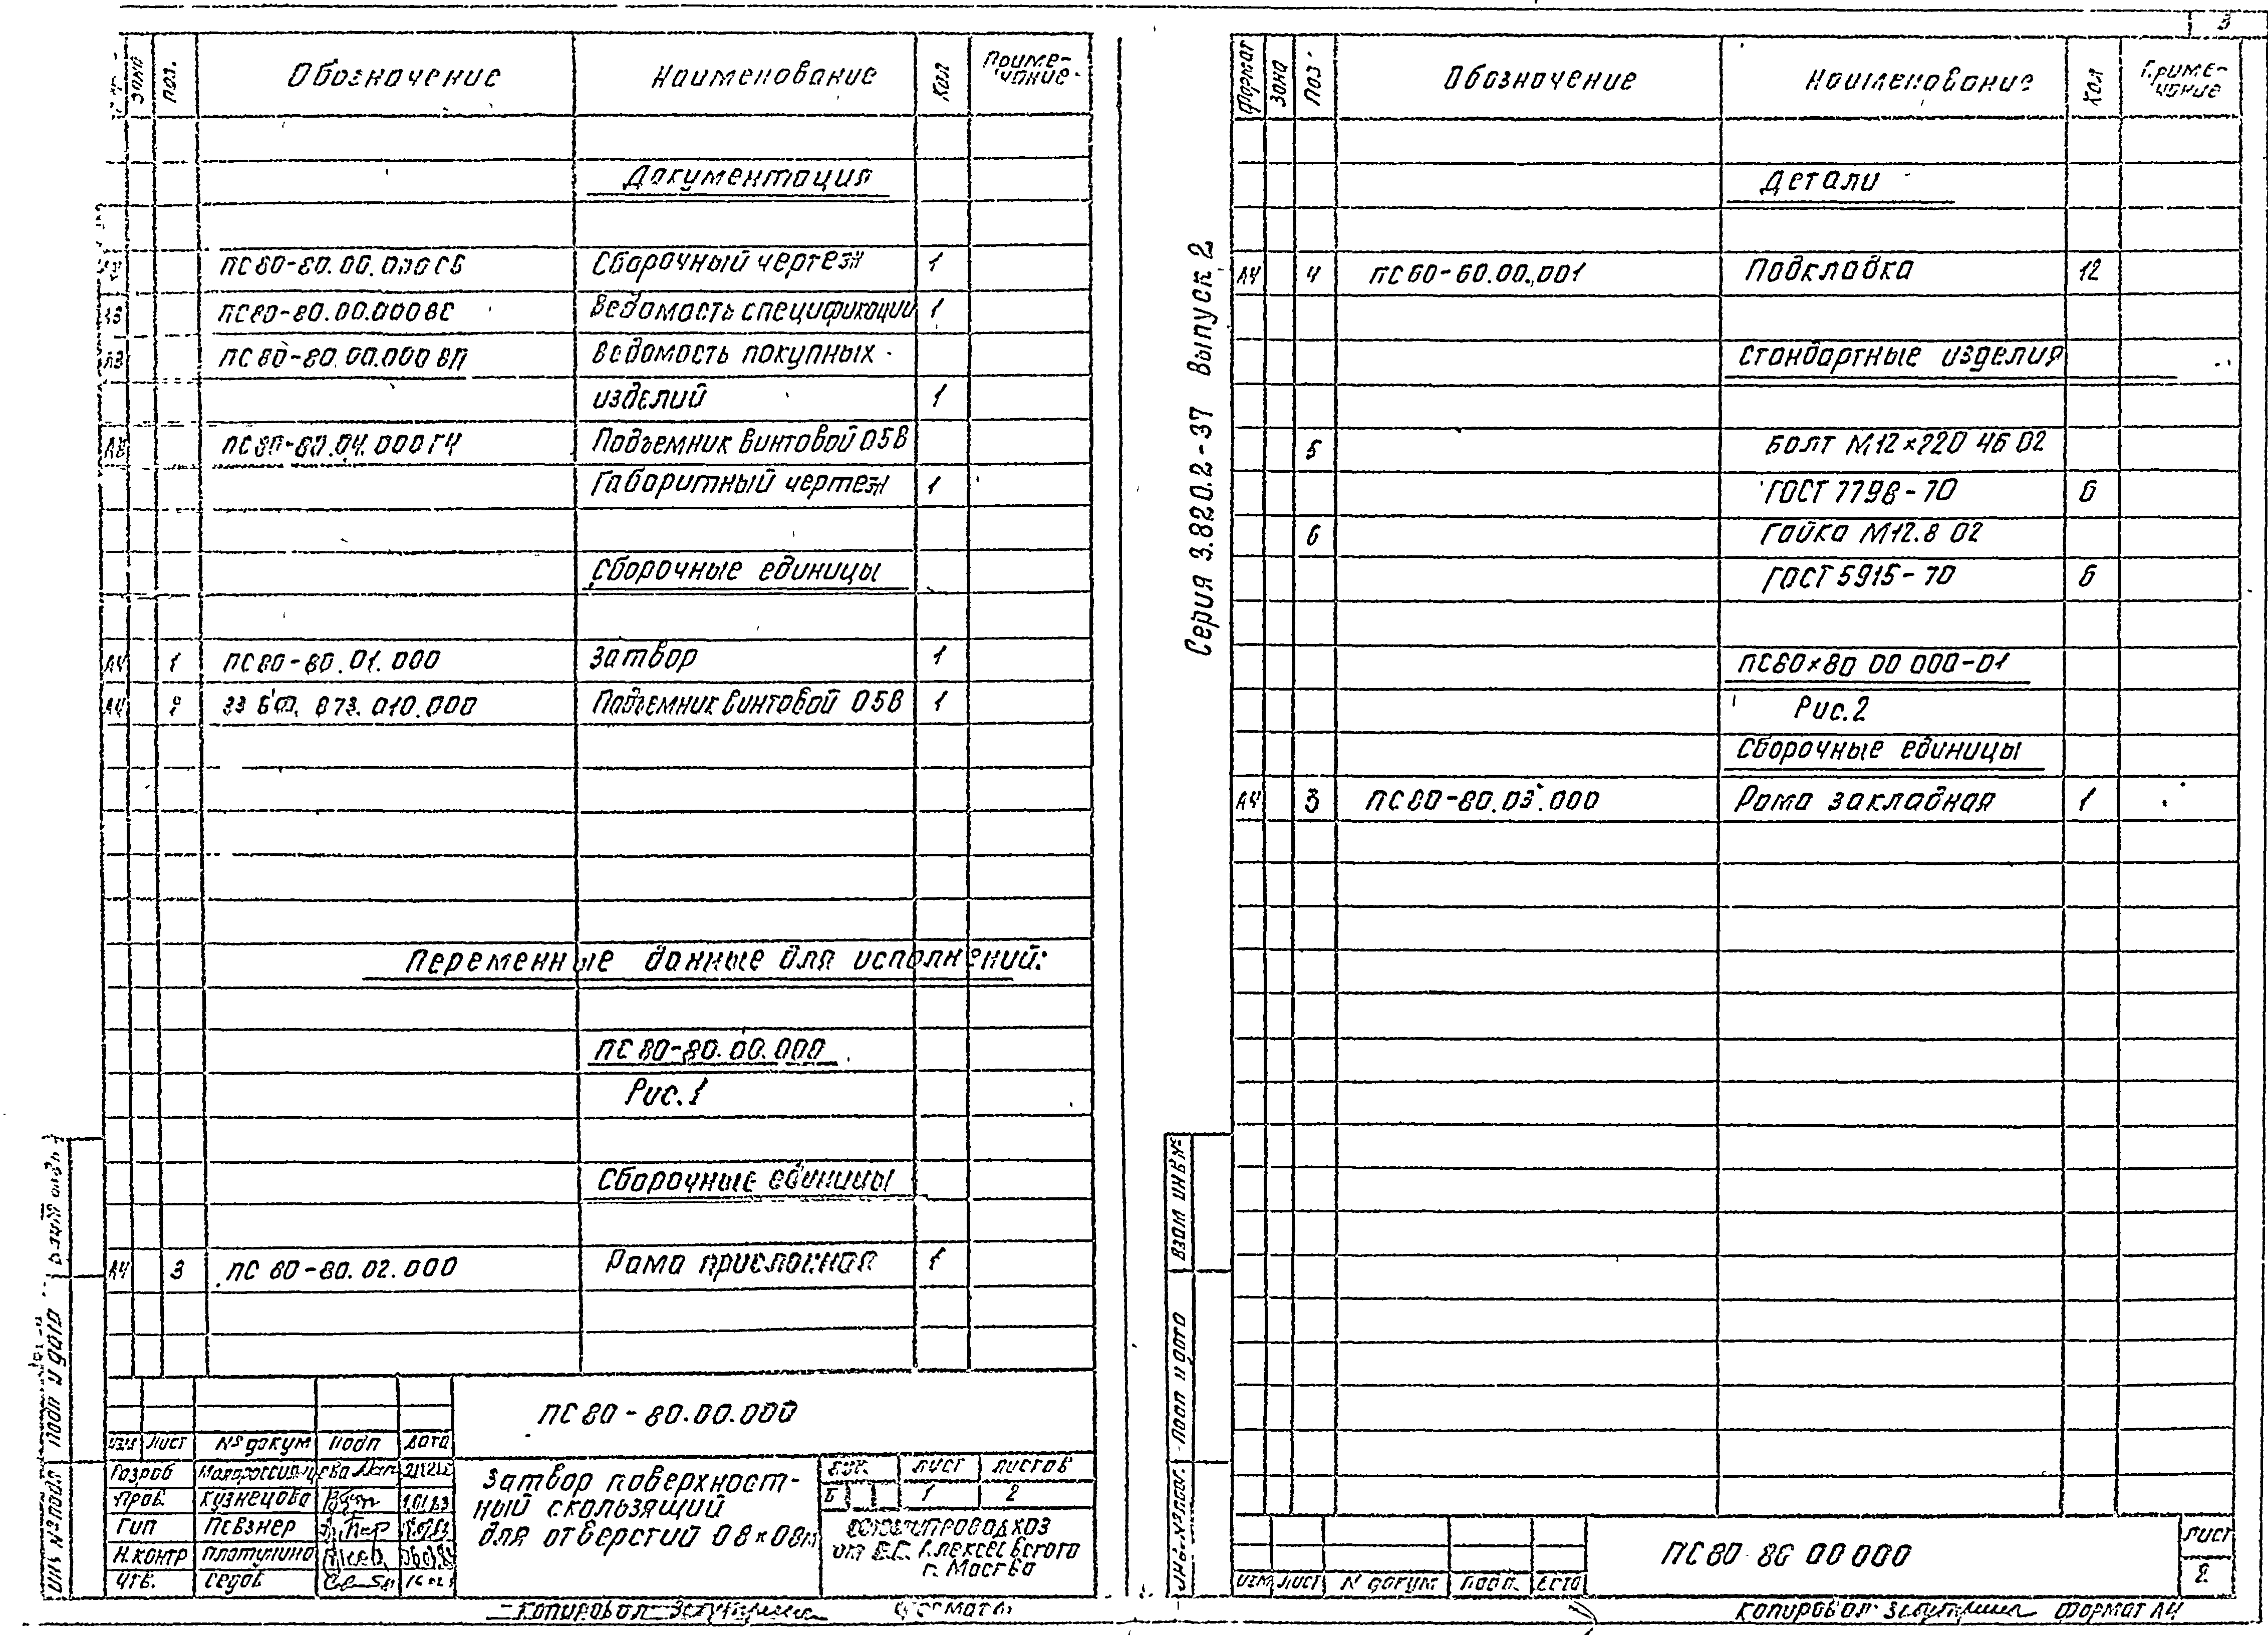 3
зона поз. Обозначение Наименование Кол Приме-
чание
Документация
ПС80-80.00.000СБ Сборочный чертеж 1
А3 ПС80-80.00.000ВС Ведомость спецификации 1
А3 ПС80-80.00.000ВП Ведомость покупных
изделий 1
ПС80-80.04.000ГЧ Подъемник винтовой 05В
Габаритный чертеж 1
Сборочные единицы
А4 1 ПС80-80.01.000 Затвор 1
А4 2 33 БФ. 873.010.000 Подъемник винтовой 05В 1
Переменные данные для исполнений:
ПС80-80.00.000
Рис.1
Сборочные единицы
А4 3 ПС 80-80.02.000 Рама прислонная 1
ПС80-80.00.000
Изм Лист № докум Подп Дата
Разраб
Пров. Кузнецова
ГИП Певзнер
Н.контр Платунина
Утв. Седов
Затвор поверхност-
ный скользящий
для отверстий 08×08м
Лит. Лист Листов
Б 1 2
Союзгипроводхоз
им Е.Е. Алексеевского
г. Москва
Инв № подл Подп и дата
Копировал Формат
Серия 3.820.2-37 Выпуск 2
Формат Зона Поз Обозначение Наименование Кол Приме-
чание
Детали
А4 4 ПС60-60.00.001 Подкладка 12
Стандартные изделия
5 Болт М12×220 46 02
ГОСТ 7798-70 6
6 Гайка М12.8 02
ГОСТ 5915-70 6
ПС80×80 00 000-01
Рис.2
Сборочные единицы
А4 3 ПС80-80.03.000 Рама закладная 1
Взам инв№
Подп и дата
Инв.№ подл.
Изм Лист N докум Подп.
ПС80-80 00 000
Лист
2
Копировал Формат А4